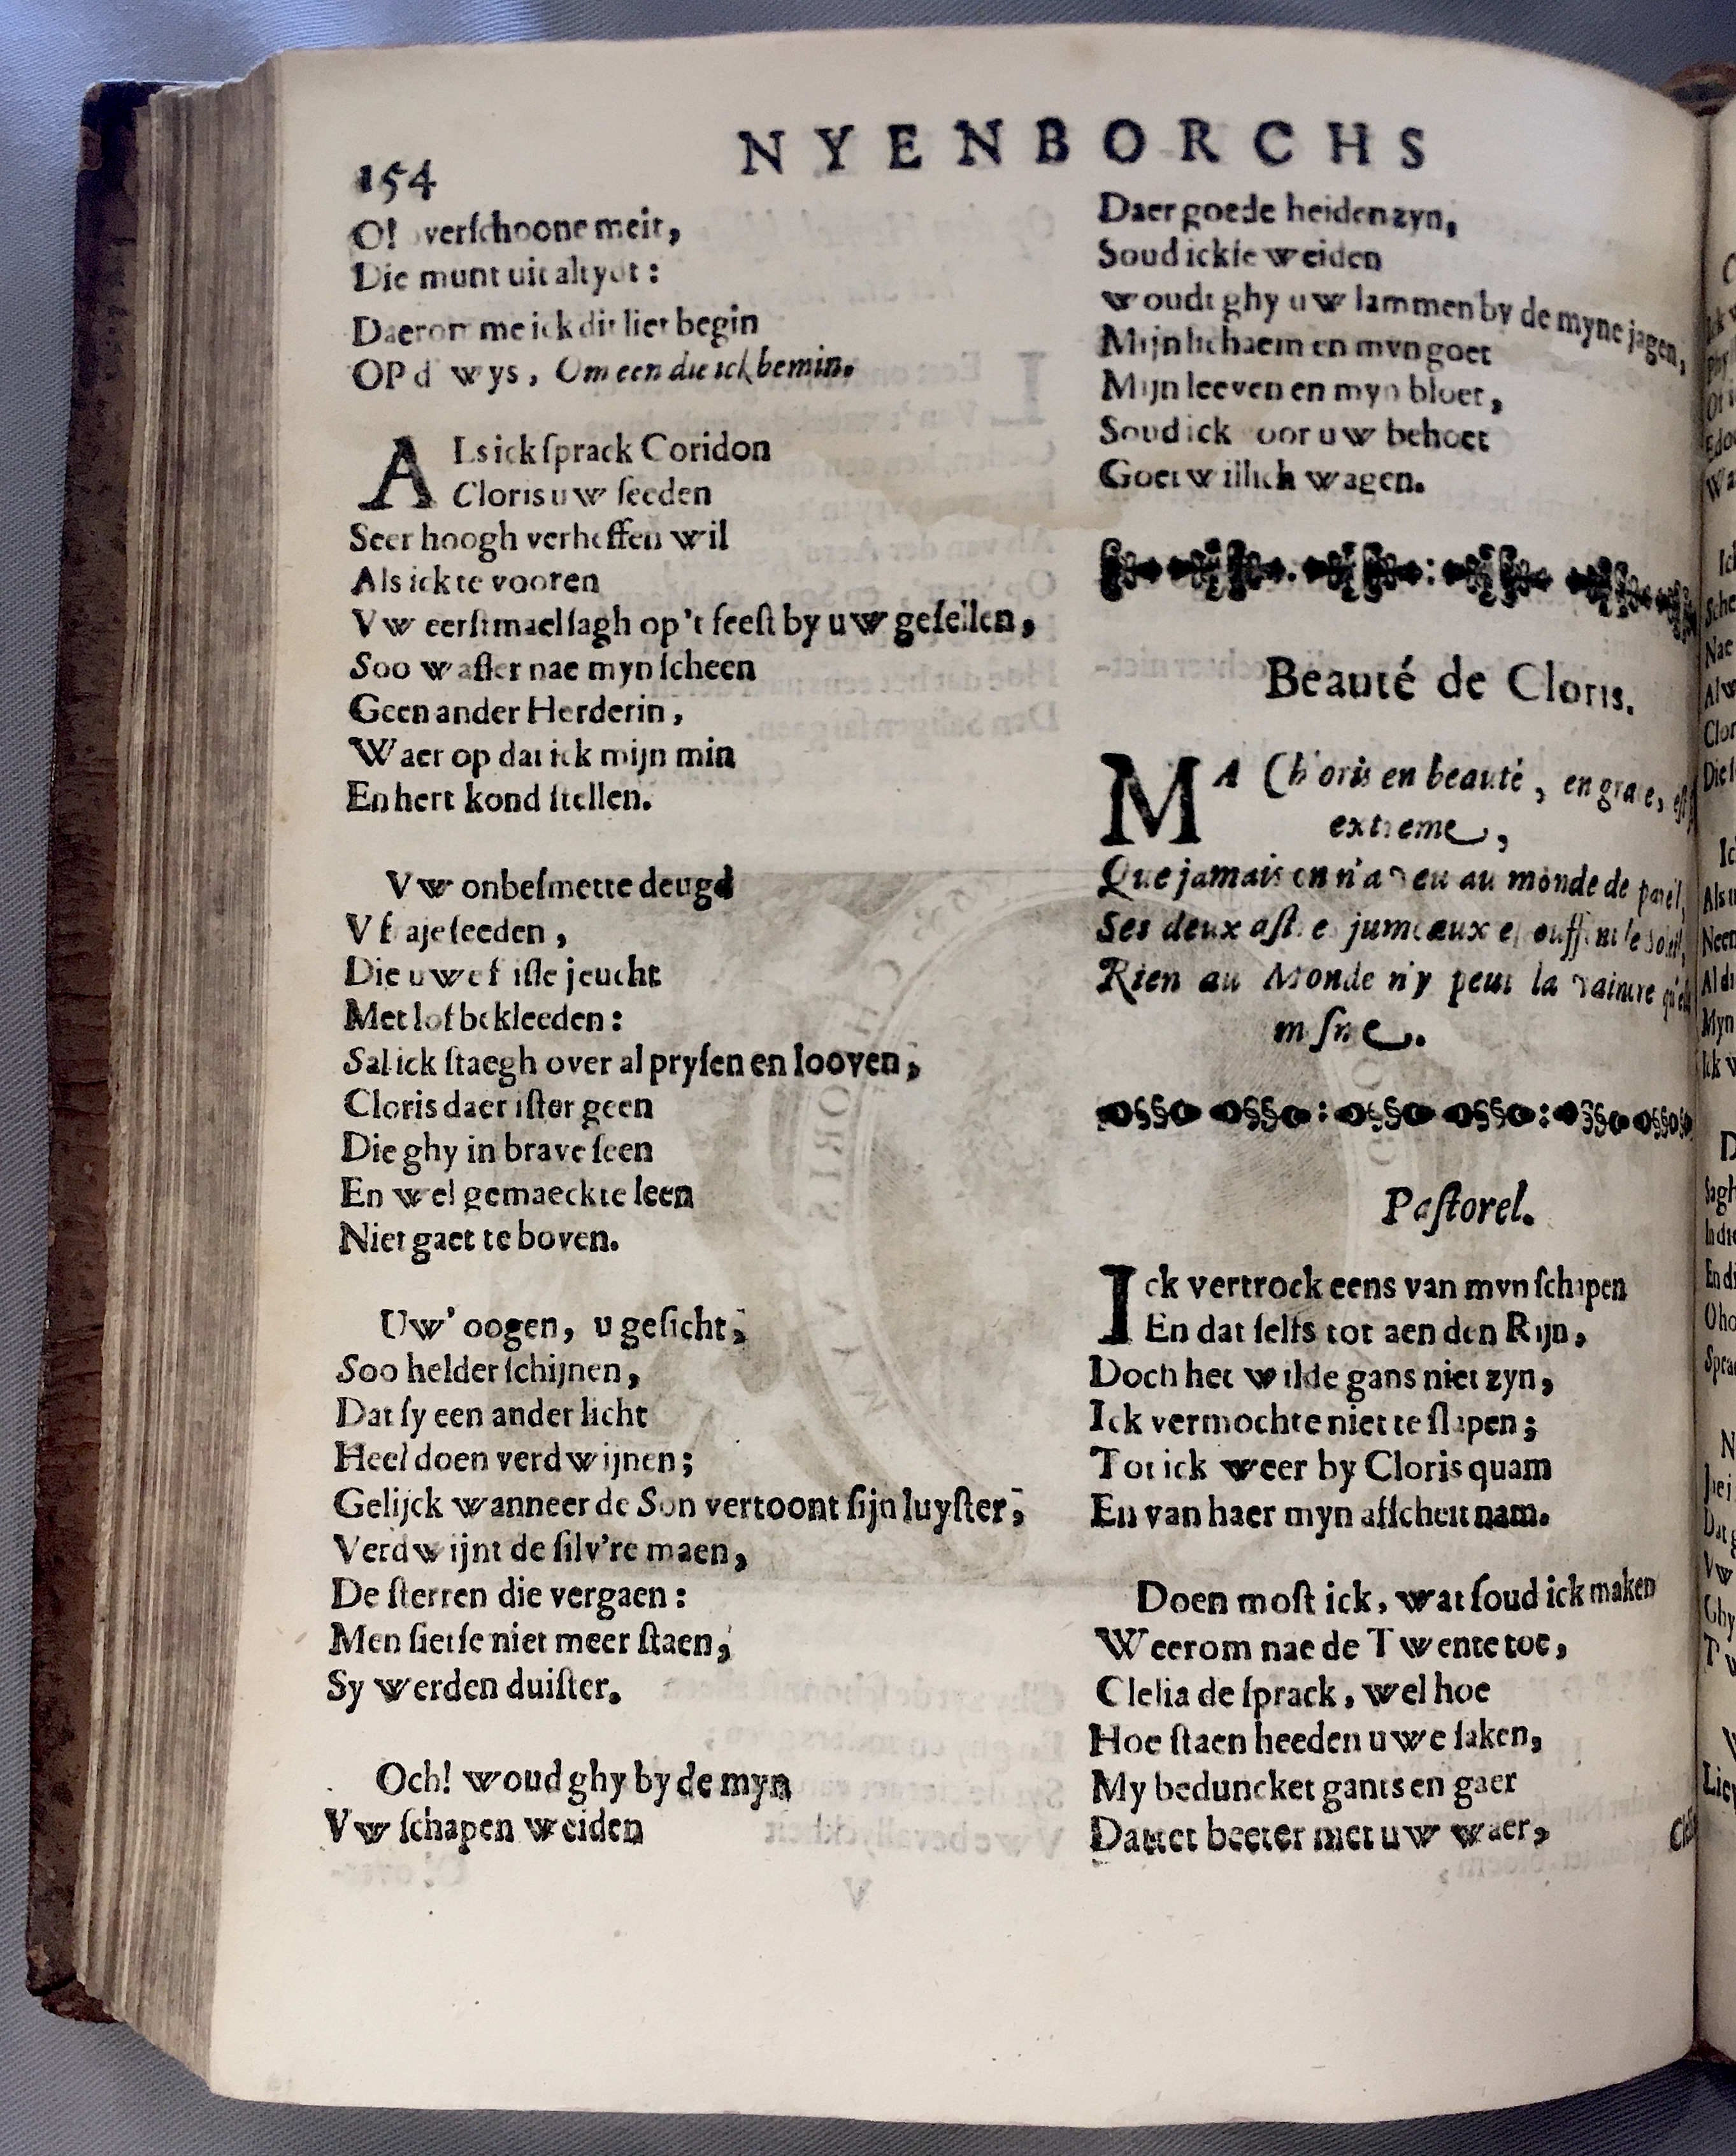 154
NYENBORCHS
O! verſchoone meit,
Die munt uit altydt:
Daerom me ick dit liet begin
OP d wys, Om een die ick bemin.
ALs ick ſprack Coridon
Cloris uw ſeeden
Seer hoogh verheffen wil
Als ick te vooren
Vw eerſtmael ſagh op't feeſt by uw geſellen,
Soo waſſer nae myn ſcheen
Geen ander Herderin,
Waer op dat ick mijn min
En hert kond ſtellen.
Vw onbeſmette deugd
V fraje ſeeden,
Die uwe friſſe jeucht
Met lof bekleeden:
Sal ick ſtaegh over al pryſen en looven,
Cloris daer iſſer geen
Die ghy in brave ſeen
En wel gemaeckte leen
Niet gaet te boven.
Uw' oogen, u geſicht,
Soo helder ſchijnen,
Dat ſy een ander licht
Heel doen verdwijnen;
Gelijck wanneer de Son vertoont ſijn luyſter,
Verdwijnt de ſilv're maen,
De ſterren die vergaen:
Men ſiet ſe niet meer ſtaen,
Sy werden duiſter.
Och! woud ghy by de myn
Vw ſchapen weiden
Daer goede heiden zyn,
Soud ick ſe weiden
woudt ghy uw lammen by de myne jagen,
Mijn lichaem en myn goet
Mijn leeven en myn bloet,
Soud ick oor uw behoet
Goetwillich wagen.
Beauté de Cloris.
MA Chloris en beauté, en grace, eſt
extreme,
Que jamais on n'a veu au monde de pareil,
Ses deux aſtres jumeaux eſtouffent le ſoleil,
Rien au Monde n'y peut la vaincre qu'elle
meſme.
Paſtorel.
Ick vertrock eens van myn ſchapen
En dat ſelfs tot aen den Rijn,
Doch het wilde gans niet zyn,
Ick vermochte niet te ſlapen;
Tot ick weer by Cloris quam
En van haer myn afſcheit nam.
Doen moſt ick, wat ſoud ick maken
Weerom nae de Twente toe,
Clelia de ſprack, wel hoe
Hoe ſtaen heeden uwe ſaken,
My beduncket gants en gaer
Dattet beeter met uw waer,